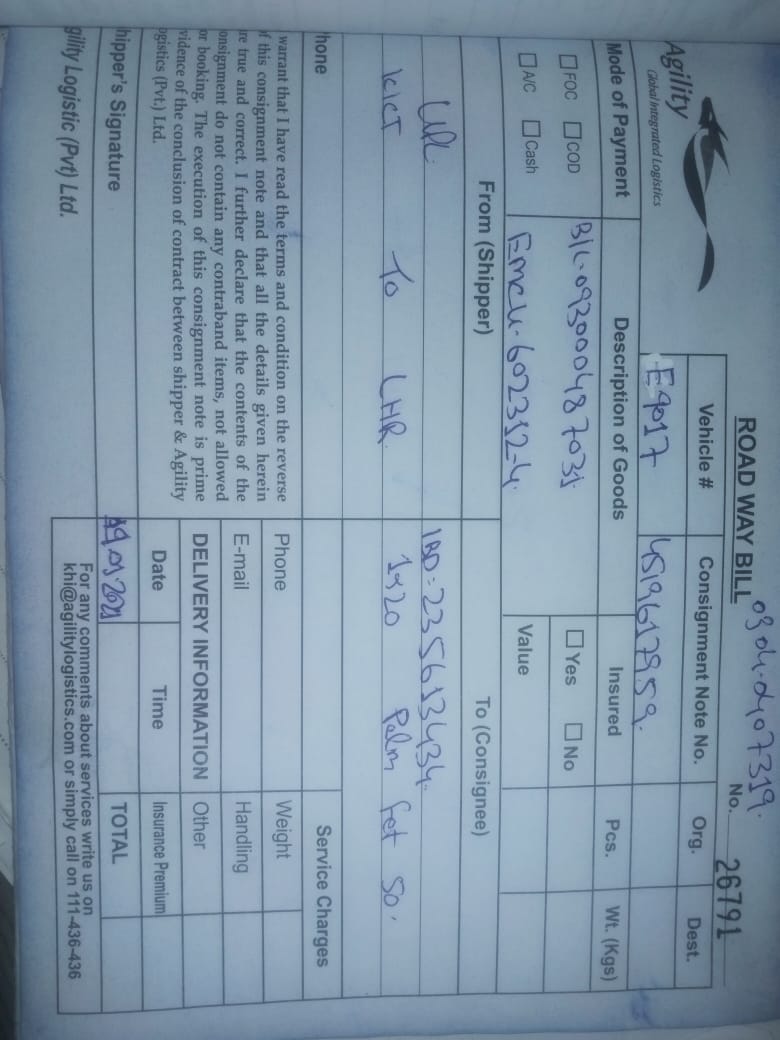 0304-0407319.
ROAD WAY BILL
No. 26791
Agility
Global Integrated Logistics
Vehicle # Consignment Note No. Org. Dest.
E9017 4519617959.
Mode of Payment Description of Goods Insured Pcs. Wt. (Kgs)
FOC COD B/L-093000487031 Yes No
A/C Cash Emcu-602312-4. Value
From (Shipper) To (Consignee)
IBD=235613434-
KICT To LHR 1x20 Palm fet 50.
hone Service Charges
warrant that I have read the terms and condition on the reverse
f this consignment note and that all the details given herein
re true and correct. I further declare that the contents of the
onsignment do not contain any contraband items, not allowed
or booking. The execution of this consignment note is prime
vidence of the conclusion of contract between shipper & Agility
ogistics (Pvt.) Ltd.
Phone Weight
E-mail Handling
DELIVERY INFORMATION Other
Date Time Insurance Premium
hipper's Signature 19.01.2021 TOTAL
gility Logistic (Pvt) Ltd.
For any comments about services write us on
khi@agilitylogistics.com or simply call on 111-436-436